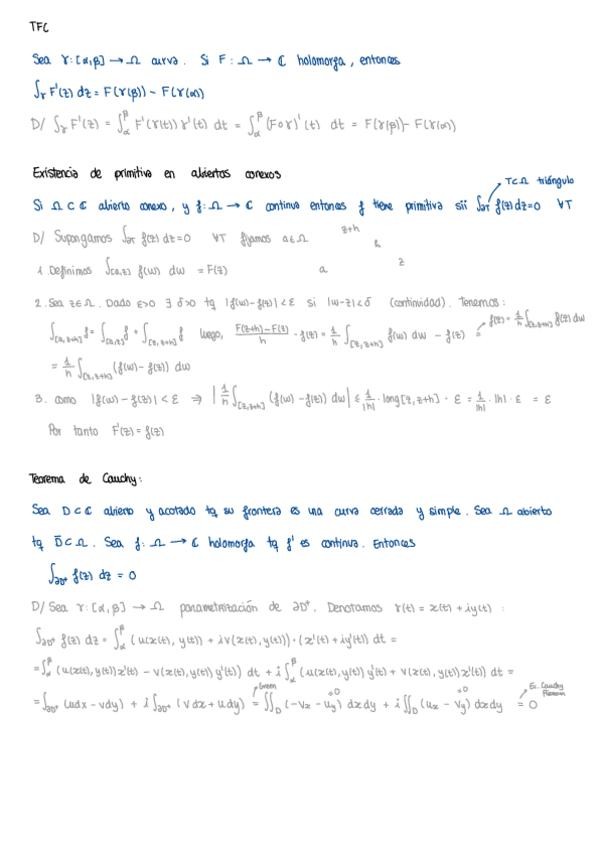 TFC
Sea γ: [α,β] → Ω curva. Si F: Ω → ℂ holomorfa, entonces
∫_γ F'(z) dz = F(γ(β)) - F(γ(α))
D/ ∫_γ F'(z) = ∫_α^β F'(γ(t)) γ'(t) dt = ∫_α^β (F∘γ)'(t) dt = F(γ(β)) - F(γ(α))
Existencia de primitiva en abiertos conexos
T⊂Ω triángulo
Si Ω ⊂ ℂ abierto conexo, y f: Ω → ℂ continua entonces f tiene primitiva sii ∫_∂T f(z) dz = 0 ∀T
D/ Supongamos ∫_∂T f(z) dz = 0 ∀T fijamos a∈Ω
z+h
h
z
a
1. Definimos ∫_[a,z] f(w) dw = F(z)
2. Sea z∈Ω. Dado ε>0 ∃ δ>0 tq |f(w)-f(z)| < ε si |w-z|<δ (continuidad). Tenemos:
∫_[a,z+h] f = ∫_[a,z] f + ∫_[z,z+h] f luego, (F(z+h)-F(z))/h - f(z) = 1/h ∫_[z,z+h] f(w) dw - f(z) = f(z) = 1/h ∫_[z,z+h] f(z) dw
= 1/h ∫_[z,z+h] (f(w) - f(z)) dw
3. como |f(w)-f(z)| < ε ⇒ |1/h ∫_[z,z+h] (f(w) - f(z)) dw| ≤ 1/|h| · long[z,z+h] · ε = 1/|h| · |h| · ε = ε
Por tanto F'(z) = f(z)
Teorema de Cauchy:
Sea D⊂ℂ abierto y acotado tq su frontera es una curva cerrada y simple. Sea Ω abierto
tq D̄⊂Ω. Sea f: Ω → ℂ holomorfa tq f' es continua. Entonces
∫_∂D⁺ f(z) dz = 0
D/ Sea γ: [α,β] → Ω parametrización de ∂D⁺. Denotamos γ(t) = x(t) + iy(t) :
∫_∂D⁺ f(z) dz = ∫_α^β (u(x(t), y(t)) + iv(x(t), y(t))) · (x'(t) + iy'(t)) dt =
= ∫_α^β (u(x(t), y(t)) x'(t) - v(x(t), y(t)) y'(t)) dt + i ∫_α^β (u(x(t), y(t)) y'(t) + v(x(t), y(t)) x'(t)) dt =
Green =0 =0 Ec. Cauchy Riemann
= ∫_∂D⁺ (udx - vdy) + i ∫_∂D⁺ (vdx + udy) = ∬_D (-vx - uy) dxdy + i ∬_D (ux - vy) dxdy = 0